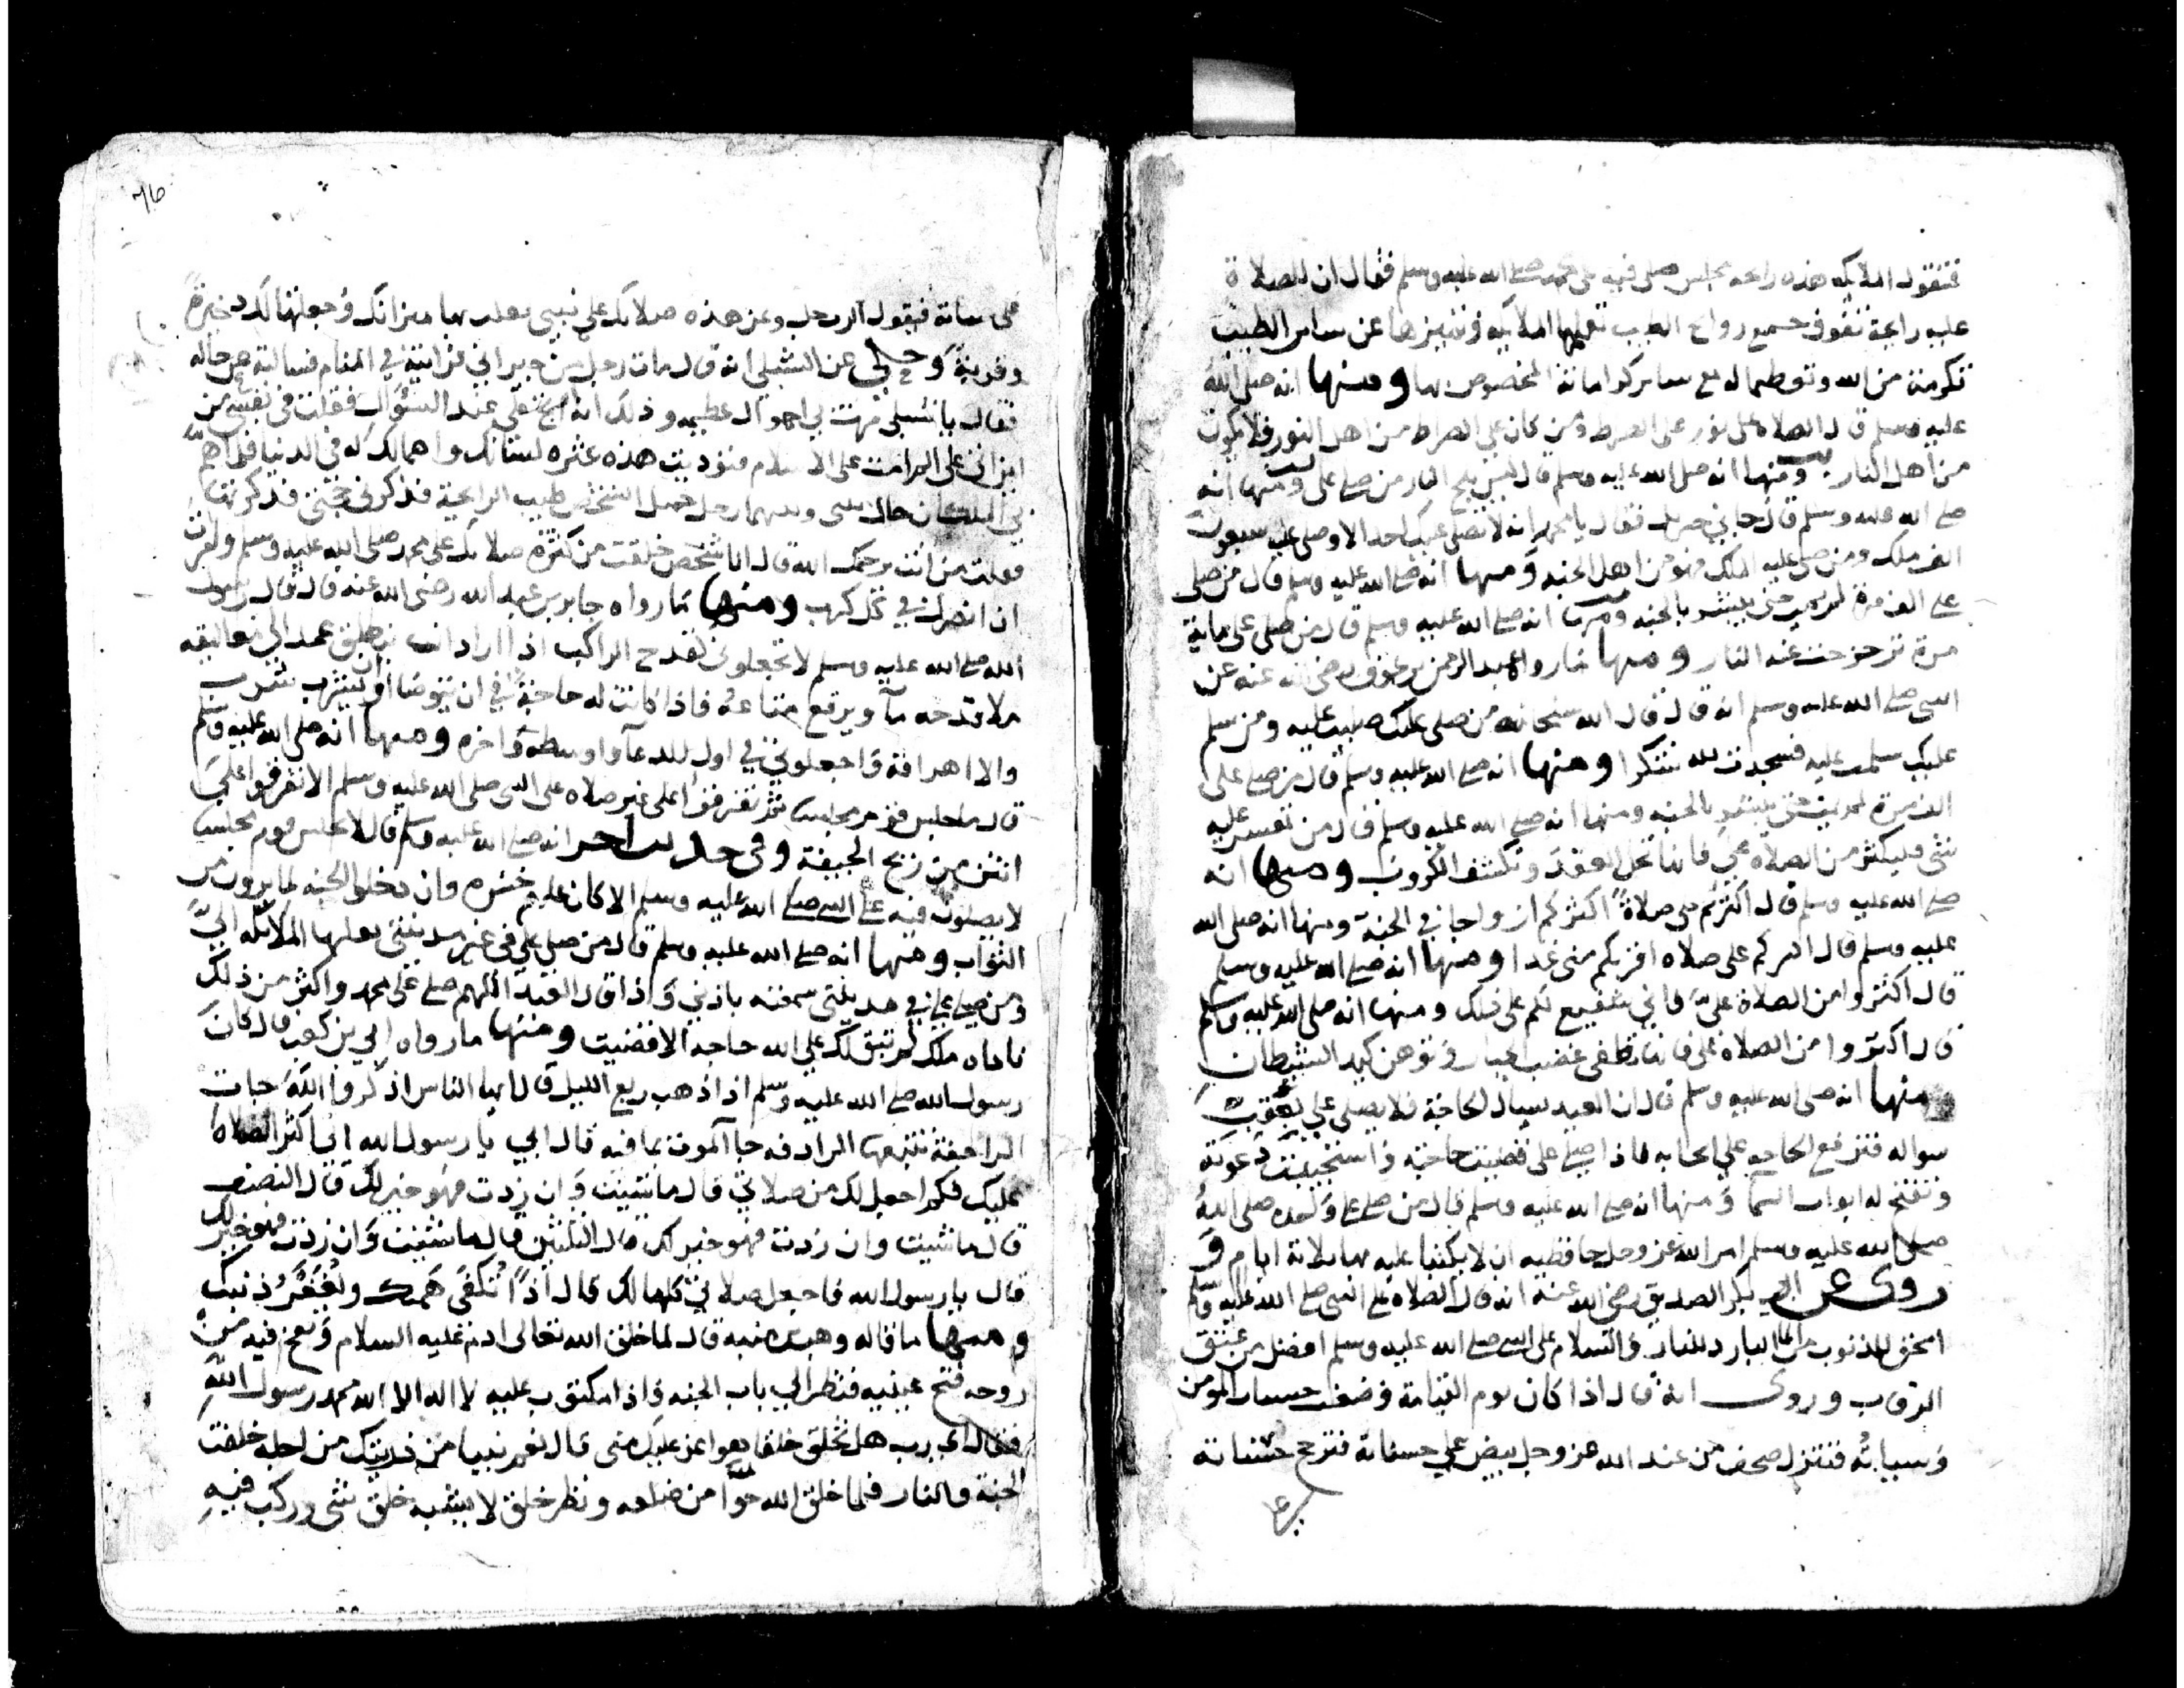 فتقول الملائكة هذه رائحة مجلس صلى فيه على محمد صلى الله عليه وسلم فقال ان للصلاة
عليه رائحة تفوق جميع روائح الطيب تعلمها الملائكة وتميزها عن سائر الطيب
تكرمة من الله وتعظيما له مع سائر كراماته المخصوص بها ومنها انه صلى الله
عليه وسلم قال الصلاة على نور على الصراط ومن كان على الصراط من اهل النور فلا يكون
من اهل النار ومنها انه صلى الله عليه وسلم قال لن يلج النار من صلى علي ومنها انه
صلى الله عليه وسلم قال جاني جبريل فقال يا محمد انه لا يصلى عليك احد الا وصلى عليه سبعون
الف ملك ومن صلى عليه الملك فهو من اهل الجنه ومنها انه صلى الله عليه وسلم قال من صلى
علي الف مرة لم يمت حتى يبشر بالجنه ومنها انه صلى الله عليه وسلم قال من صلى علي ماية
مرة تزحزحت عنه النار ومنها ما رواه عبد الرحمن بن عوف رضي الله عنه عن
النبي صلى الله عليه وسلم انه قال قال الله سبحانه من صلى عليك صليت عليه ومن سلم
عليك سلمت عليه فسجدت لله شكرا ومنها انه صلى الله عليه وسلم قال من صلى علي
الف مرة لم يمت حتى يبشر بالجنه ومنها انه صلى الله عليه وسلم قال من تعسر عليه
شي فليكثر من الصلاة علي فانها تحل العقد وتكشف الكروب ومنها انه
صلى الله عليه وسلم قال اكثركم علي صلاة اكثركم ازواجا في الجنة ومنها انه صلى الله
عليه وسلم قال اكثركم علي صلاه اقربكم مني غدا ومنها انه صلى الله عليه وسلم
قال اكثروا من الصلاة علي فاني شفيع لكم على ذلك ومنها انه صلى الله عليه وسلم
قال اكثروا من الصلاة علي فانها تطفي غضب الجبار وتوهن كيد الشيطان
ومنها انه صلى الله عليه وسلم قال ان العبد ليسال الحاجة فلا يصلى علي بعقوب
سواله فترفع الحاجه على سحابه فاذا صلى علي قضيت حاجته واستجيبت دعوته
وتفتح له ابواب السما ومنها انه صلى الله عليه وسلم قال من صلى علي واحده صلى الله
صلى الله عليه وسلم امر الله عز وجل حافظيه ان لا يكتبا عليه ثلاثة ايام و
روي عن ابي بكر الصديق رضي الله عنه انه قال الصلاة على النبي صلى الله عليه وسلم
امحق للذنوب من الما البارد للنار والسلام على النبي صلى الله عليه وسلم افضل من عتق
الرقاب وروي انه قال اذا كان يوم القيامة وضعت حسنات المومن
وسياته فتنزل صحف من عند الله عز وجل بيض على حسناته فترجح حسناته
على
على سياته فيقول الرجل وعن هذه صلاتك على نبيي ثقلت بها ميزانك وجعلتها لك ذخيرة
وقربة وحكي عن الشبلي انه قال مات رجل من جيراني فرايته في المنام فسالته عن حاله
فقال يا شبلي مرت بي اهوال عظيمه وذلك انه ارتج علي عند السؤال فقلت في نفسي من
اين اتى علي الم امت على الاسلام فنوديت هذه عثره لسانك واهمالك له في الدنيا فلما هم
بي الملكان حال بيني وبينهما رجل جميل الشخص طيب الرائحة فذكرني حجتي فذكرتها
فقلت من انت يرحمك الله قال انا شخص خلقت من كثرة صلاتك على محمد صلى الله عليه وسلم وامرت
ان انصرك في كل كرب ومنها ما رواه جابر بن عبد الله رضي الله عنه قال قال رسول
الله صلى الله عليه وسلم لا تجعلوني كقدح الراكب اذا اراد ان ينطلق عمد الى معاليقه
ملا قدحه ما ويرفع متاعه فاذا كانت له حاجة في ان يتوضا او ان يشرب شرب
والا اهراقه واجعلوني في اول الدعا واوسطه واخره ومنها انه صلى الله عليه وسلم
قال ما جلس قوم مجلسا ثم تفرقوا على غير صلاه على النبي صلى الله عليه وسلم الا تفرقوا على
انتن من ريح الجيفة وفي حديث اخر انه صلى الله عليه وسلم قال لا يجلس قوم مجلسا
لا يصلون فيه على النبي صلى الله عليه وسلم الا كان عليهم حسره وان دخلوا الجنه لما يرون من
الثواب ومنها انه صلى الله عليه وسلم قال من صلى علي في غير مدينتي بعثها الملائكه الي
ومن صلى علي في مدينتي سمعته باذني واذا قال العبد اللهم صل على محمد واكثر من ذلك
ناداه ملك لم تبق لك على الله حاجه الا قضيت ومنها ما رواه ابي بن كعب قال كان
رسول الله صلى الله عليه وسلم اذا ذهب ربع الليل قال ايها الناس اذكروا الله جات
الراجفة تتبعها الرادفه جا الموت بما فيه قال ابي يا رسول الله اني اكثر الصلاة
عليك فكم اجعل لك من صلاتي قال ما شيت وان زدت فهو خير لك قال النصف
قال ما شيت وان زدت فهو خير لك قال الثلثين قال ما شيت وان زدت فهو خير لك
قال يا رسول الله فاجعل صلاتي كلها لك قال اذا تكفى همك ويغفر ذنبك
ومنها ما قاله وهب بن منبه قال لما خلق الله تعالى ادم عليه السلام ونفخ فيه من
روحه فتح عينيه فنظر الى باب الجنه واذا مكتوب عليه لا اله الا الله محمد رسول الله
فقال اي رب هل تخلق خلقا هو اعز عليك مني قال نعم نبيا من ذريتك من اجله خلقت
الجنة والنار فلما خلق الله حوا من ضلعه ونظر خلق لا يشبه خلق شي وركب فيه